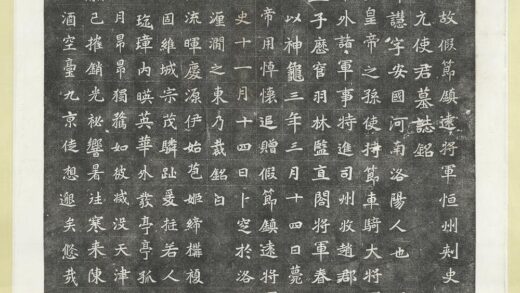 故假節鎮遠將軍恒州刺史
元使君墓誌銘
字安國河南洛陽人也
皇帝之孫使持節車騎大將
外諸軍事特進司州牧趙郡
子歷官羽林監直閤將軍春
以神龜三年三月十四日薨
帝用悼懷追贈假節鎮遠將
史十一月十四日卜窆於洛
澗之東乃裁銘曰
流暉慶源伊始苞姬締構
固維城宗茂驎趾爰挺若人
琁璋内暎英華外發亭亭孤
月昂昂獨騖如彼滅没天津
已摧銷光祕響暑往寒来陳
酒空臺九京徒想邈矣悠哉